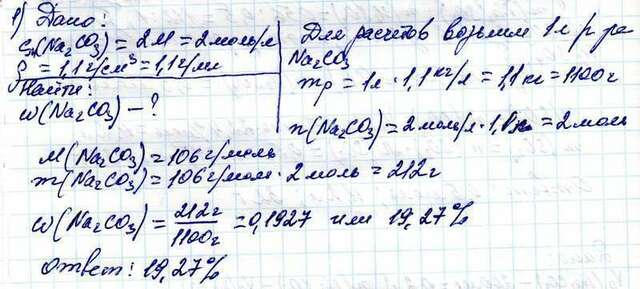 1) Дано:
C_M(Na₂CO₃) = 2М = 2моль/л
ρ = 1,1г/см³ = 1,1г/мл
Найти:
ω(Na₂CO₃) – ?
Для расчетов возьмем 1л р-ра
Na₂CO₃
m_p = 1л · 1,1 кг/л = 1,1 кг = 1100г
n(Na₂CO₃) = 2 моль/л · 1,0л = 2 моль
M(Na₂CO₃) = 106 г/моль
m(Na₂CO₃) = 106 г/моль · 2 моль = 212г
ω(Na₂CO₃) = 212г/1100г = 0,1927 или 19,27%
Ответ: 19,27%